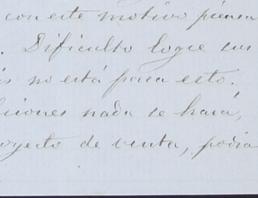 con este motivo piensa
. Dificulto logre sus
is no está para esto.
luciones nada se hará,
royecto de venta, podía